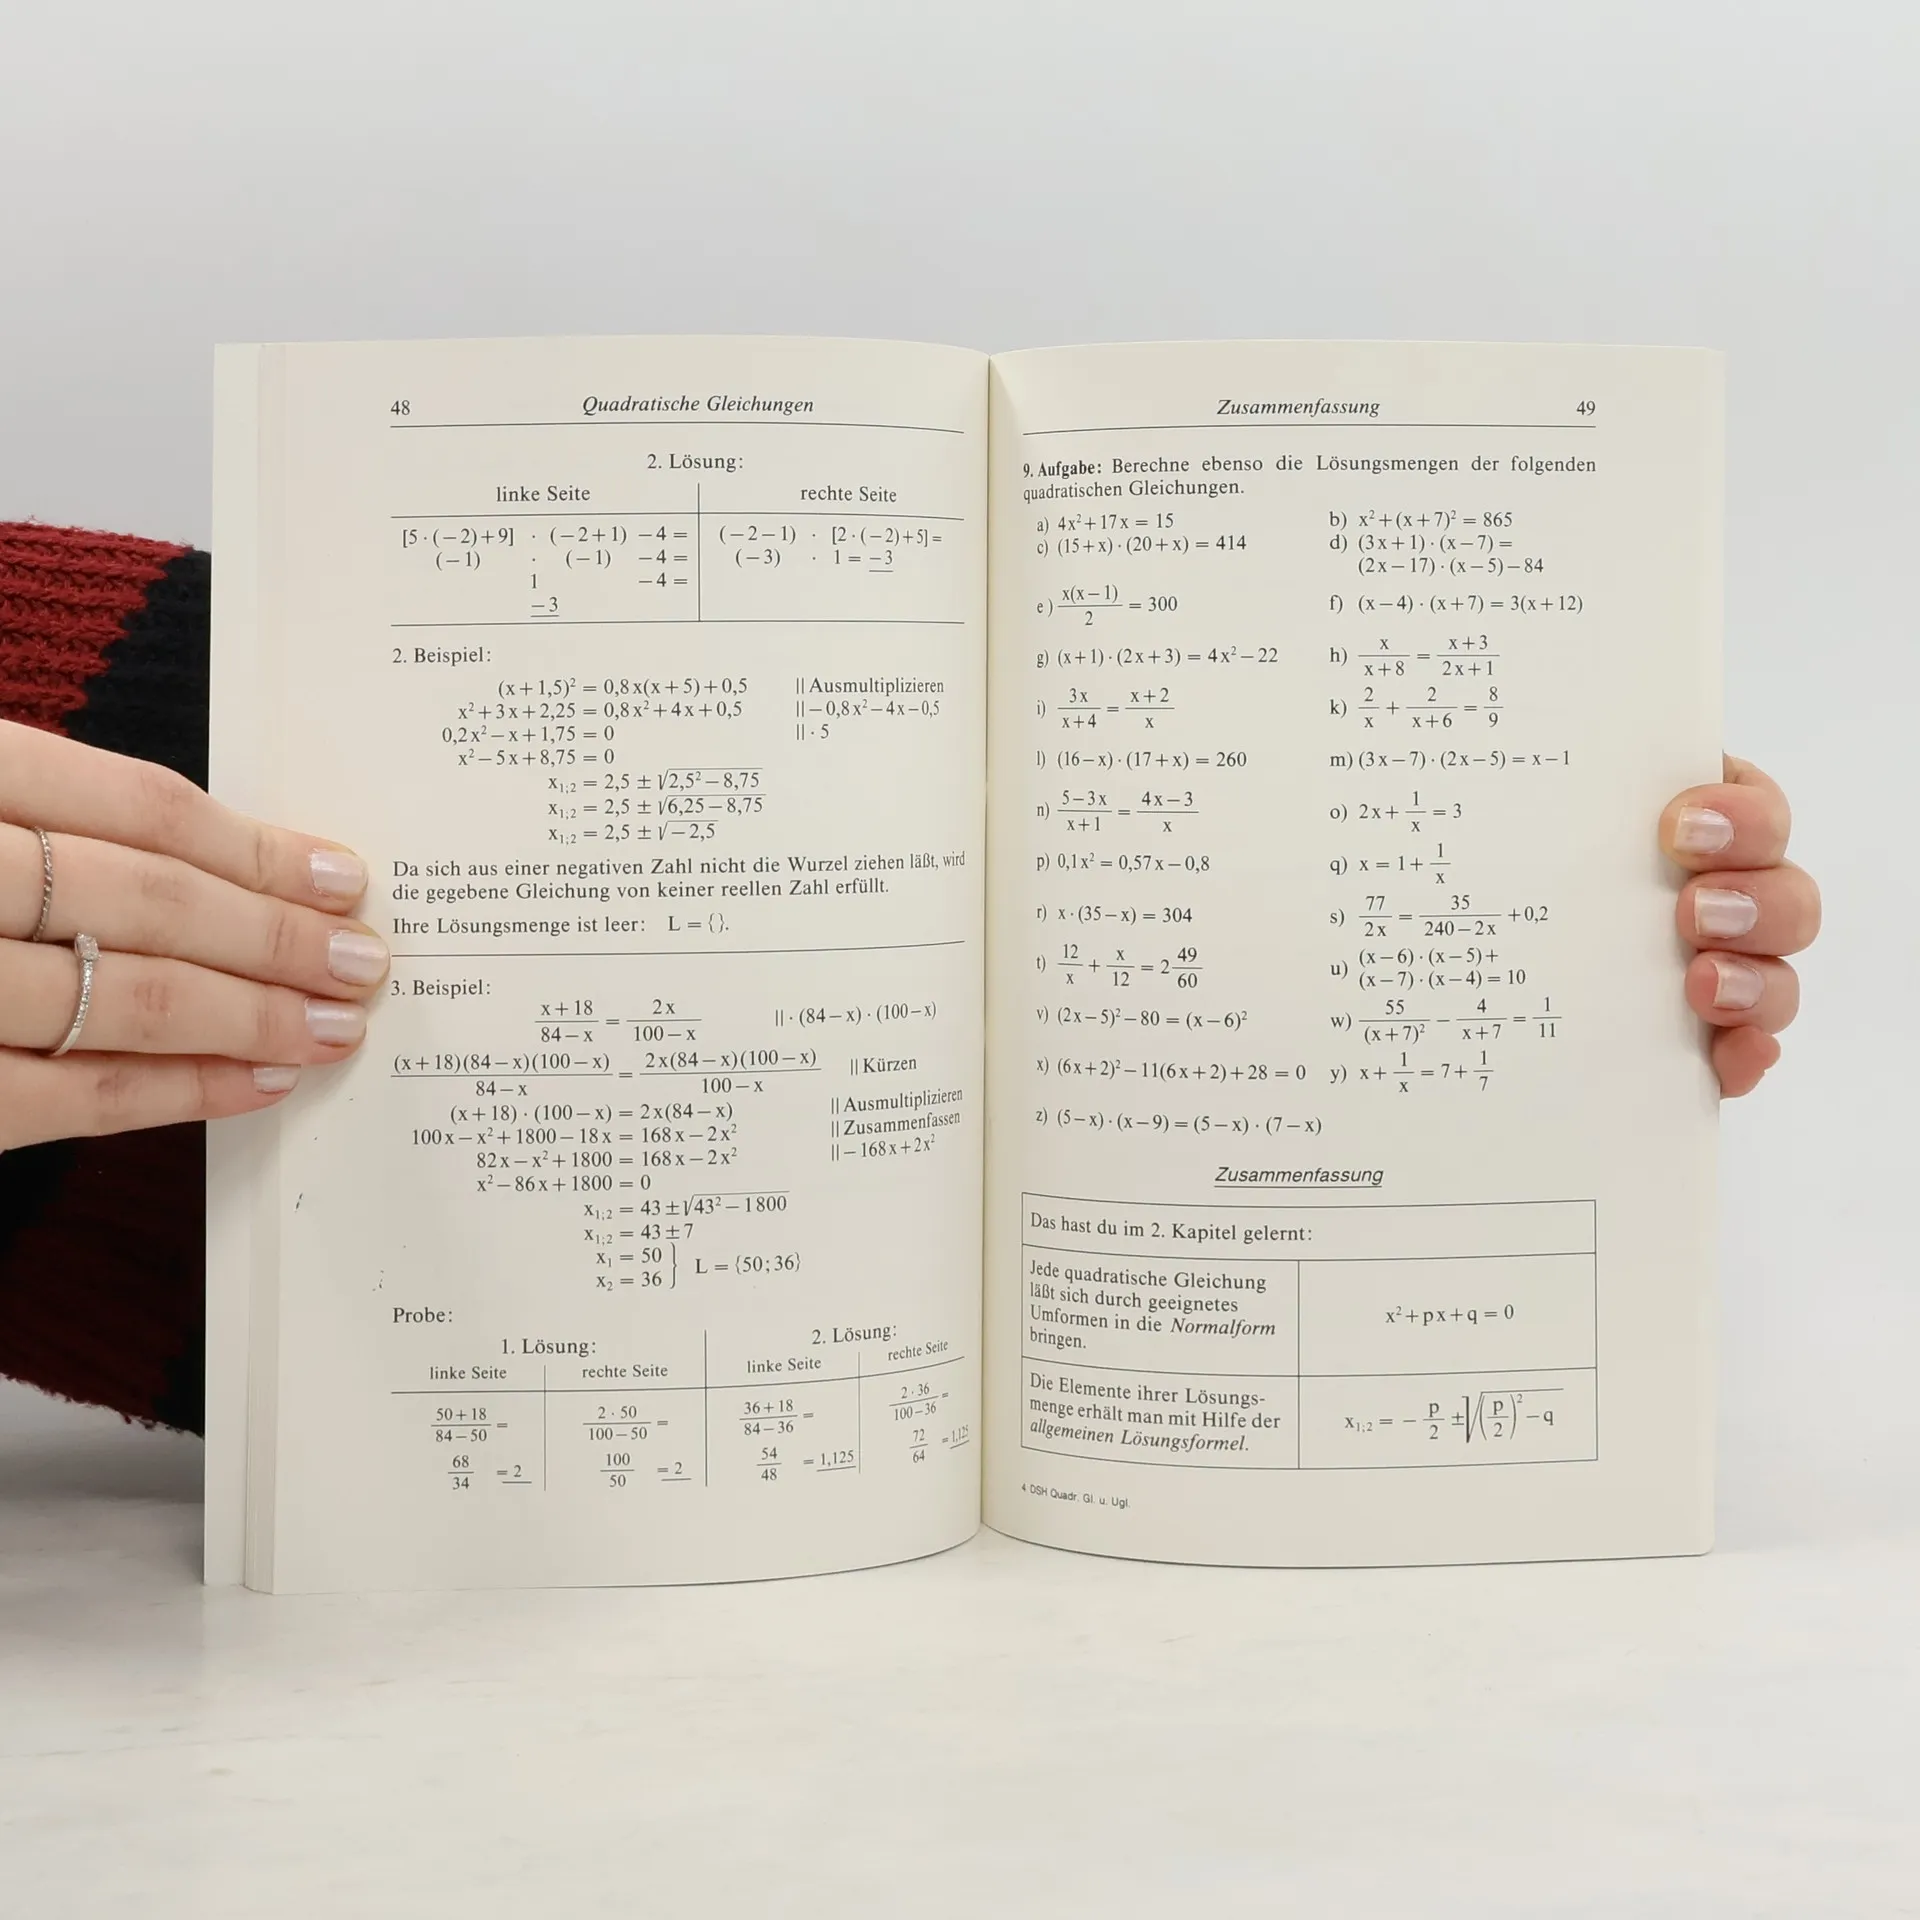 48 Quadratische Gleichungen
2. Lösung:
linke Seite rechte Seite
[5·(−2)+9] · (−2+1) −4 = (−2−1) · [2·(−2)+5] =
(−1) · (−1) −4 = (−3) · 1 = −3
1 −4 =
−3
2. Beispiel:
(x+1,5)² = 0,8x(x+5)+0,5 || Ausmultiplizieren
x²+3x+2,25 = 0,8x²+4x+0,5 || −0,8x²−4x−0,5
0,2x²−x+1,75 = 0 || · 5
x²−5x+8,75 = 0
x₁;₂ = 2,5 ± √(2,5²−8,75)
x₁;₂ = 2,5 ± √(6,25−8,75)
x₁;₂ = 2,5 ± √(−2,5)
Da sich aus einer negativen Zahl nicht die Wurzel ziehen läßt, wird
die gegebene Gleichung von keiner reellen Zahl erfüllt.
Ihre Lösungsmenge ist leer: L = {}.
3. Beispiel:
(x+18)/(84−x) = 2x/(100−x) || · (84−x) · (100−x)
(x+18)(84−x)(100−x)/(84−x) = 2x(84−x)(100−x)/(100−x) || Kürzen
(x+18) · (100−x) = 2x(84−x) || Ausmultiplizieren
100x−x²+1800−18x = 168x−2x² || Zusammenfassen
82x−x²+1800 = 168x−2x² || −168x+2x²
x²−86x+1800 = 0
x₁;₂ = 43 ± √(43²−1800)
x₁;₂ = 43 ± 7
x₁ = 50
x₂ = 36 } L = {50; 36}
Probe:
1. Lösung: 2. Lösung:
linke Seite rechte Seite linke Seite rechte Seite
(50+18)/(84−50) = (2·50)/(100−50) = (36+18)/(84−36) = (2·36)/(100−36) =
68/34 = 2 100/50 = 2 54/48 = 1,125 72/64 = 1,125
Zusammenfassung 49
9. Aufgabe: Berechne ebenso die Lösungsmengen der folgenden
quadratischen Gleichungen.
a) 4x²+17x = 15 b) x²+(x+7)² = 865
c) (15+x)·(20+x) = 414 d) (3x+1)·(x−7) =
(2x−17)·(x−5)−84
e) x(x−1)/2 = 300 f) (x−4)·(x+7) = 3(x+12)
g) (x+1)·(2x+3) = 4x²−22 h) x/(x+8) = (x+3)/(2x+1)
i) 3x/(x+4) = (x+2)/x k) 2/x + 2/(x+6) = 8/9
l) (16−x)·(17+x) = 260 m) (3x−7)·(2x−5) = x−1
n) (5−3x)/(x+1) = (4x−3)/x o) 2x + 1/x = 3
p) 0,1x² = 0,57x−0,8 q) x = 1 + 1/x
r) x·(35−x) = 304 s) 77/2x = 35/(240−2x) + 0,2
t) 12/x + x/12 = 2 49/60 u) (x−6)·(x−5)+
(x−7)·(x−4) = 10
v) (2x−5)²−80 = (x−6)² w) 55/(x+7)² − 4/(x+7) = 1/11
x) (6x+2)²−11(6x+2)+28 = 0 y) x + 1/x = 7 + 1/7
z) (5−x)·(x−9) = (5−x)·(7−x)
Zusammenfassung
Das hast du im 2. Kapitel gelernt:
Jede quadratische Gleichung
läßt sich durch geeignetes
Umformen in die Normalform
bringen.
x²+px+q = 0
Die Elemente ihrer Lösungs-
menge erhält man mit Hilfe der
allgemeinen Lösungsformel.
x₁;₂ = −p/2 ± √((p/2)²−q)
4 DSH Quadr. Gl. u. Ugl.